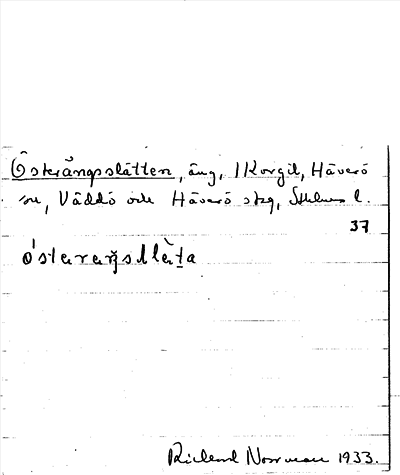 Österängsslätten, äng, 1 Korgil, Häverö
sn, Väddö och Häverö skg, Sthlms l.
37
Rickard Norman 1933.